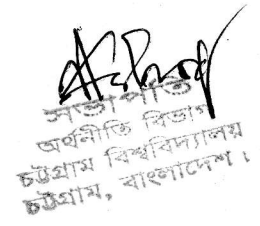 সভাপতি
অর্থনীতি বিভাগ
চট্টগ্রাম বিশ্ববিদ্যালয়
চট্টগ্রাম, বাংলাদেশ।